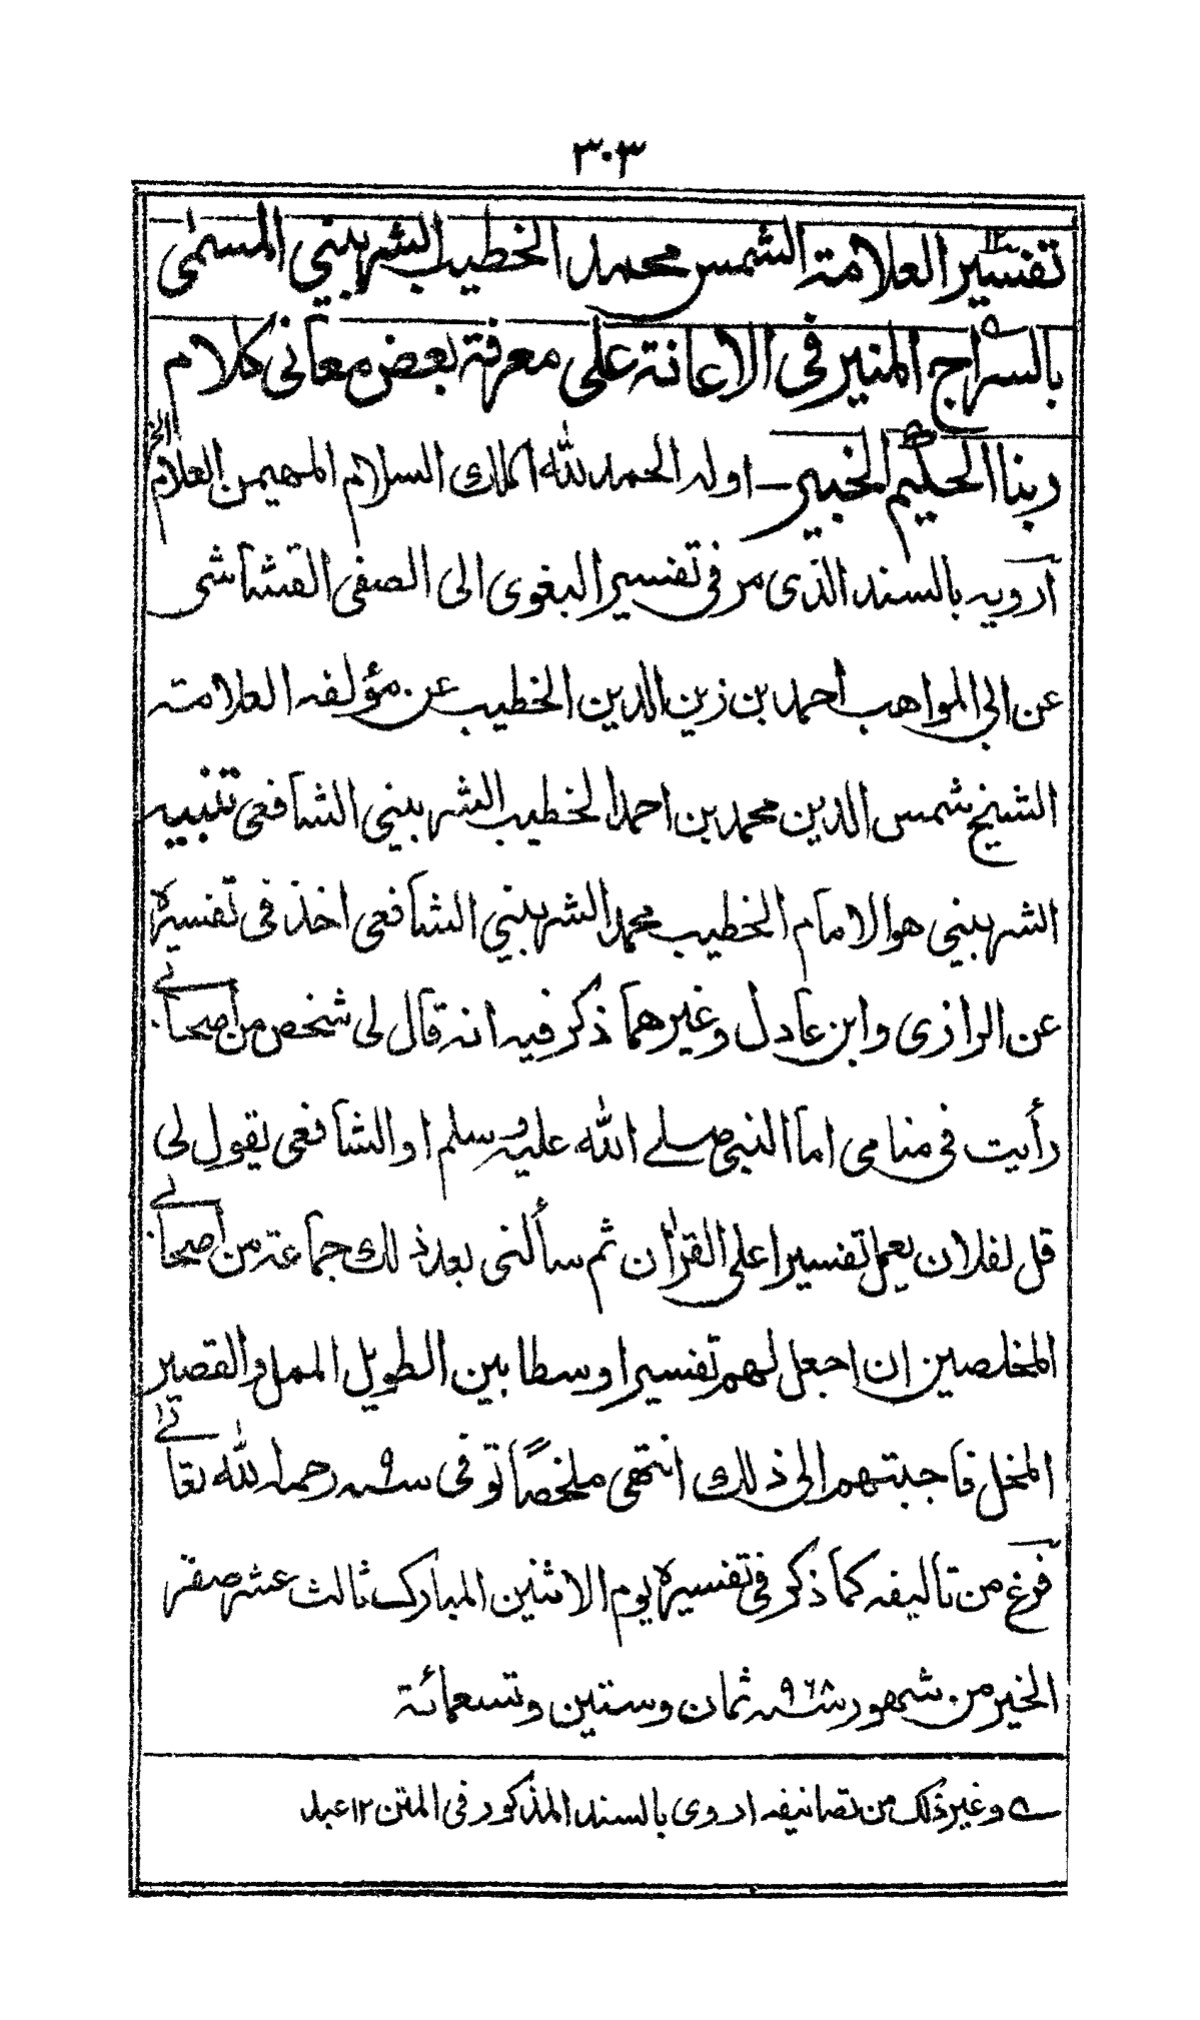 ٣٠٣
تفسير العلامة الشمس محمد الخطيب الشربيني المسمى
بالسراج المنير فى الاعانة على معرفة بعض معانى كلام
ربنا الحكيم الخبير ـ اوله الحمد لله الملك السلام المهيمن العلام الخ
أرويه بالسند الذى مر فى تفسير البغوى الى الصفى القشاشى
عن ابي المواهب احمد بن زين الدين الخطيب عن مؤلفه العلامة
الشيخ شمس الدين محمد بن احمد الخطيب الشربيني الشافعى تنبيه
الشربيني هو الامام الخطيب محمد الشربيني الشافعى اخذ فى تفسيره
عن الرازى وابن عادل وغيرهما ذكر فيه انه قال لى شخص من أصحابي
رأيت فى منامى اما النبي صلے الله عليه وسلم او الشافعى يقول لى
قل لفلان يعمل تفسيرا على القرآن ثم سألنى بعد ذلك جماعة من أصحابي
المخلصين ان اجعل لهم تفسيرا وسطا بين الطويل الممل والقصير
المخل فاجبتهم الى ذلك انتهى ملخصاً توفى سنه رحمه الله تعالى
فرغ من تأليفه كما ذكر فى تفسيره يوم الاثنين المبارك ثالث عشر صفر
الخير من شهور سنه ٩٦٨ ثمان وستين وتسعمائة
ے وغير ذلك من تصانيفه اروى بالسند المذكور فى المتن ١٢ عبد